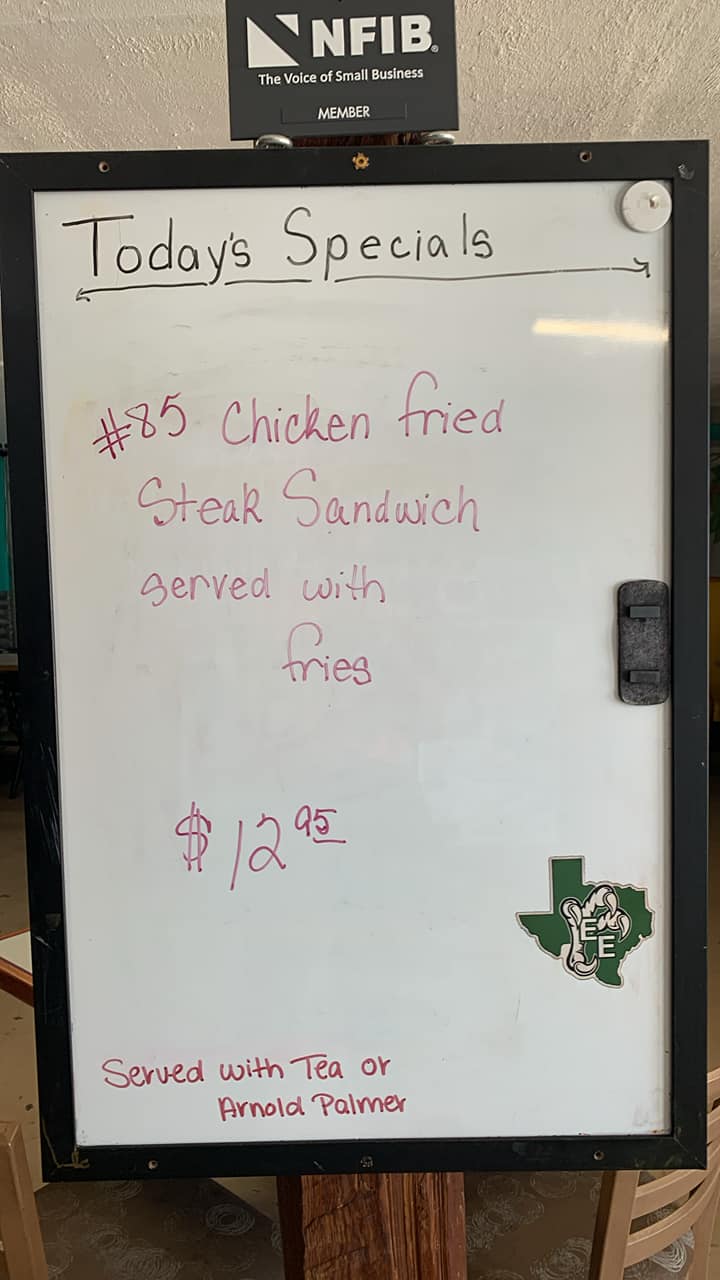 NFIB®
The Voice of Small Business
MEMBER
Today's Specials
#85 Chicken fried
Steak Sandwich
served with
fries
$12 95
E
E
Served with Tea or
Arnold Palmer